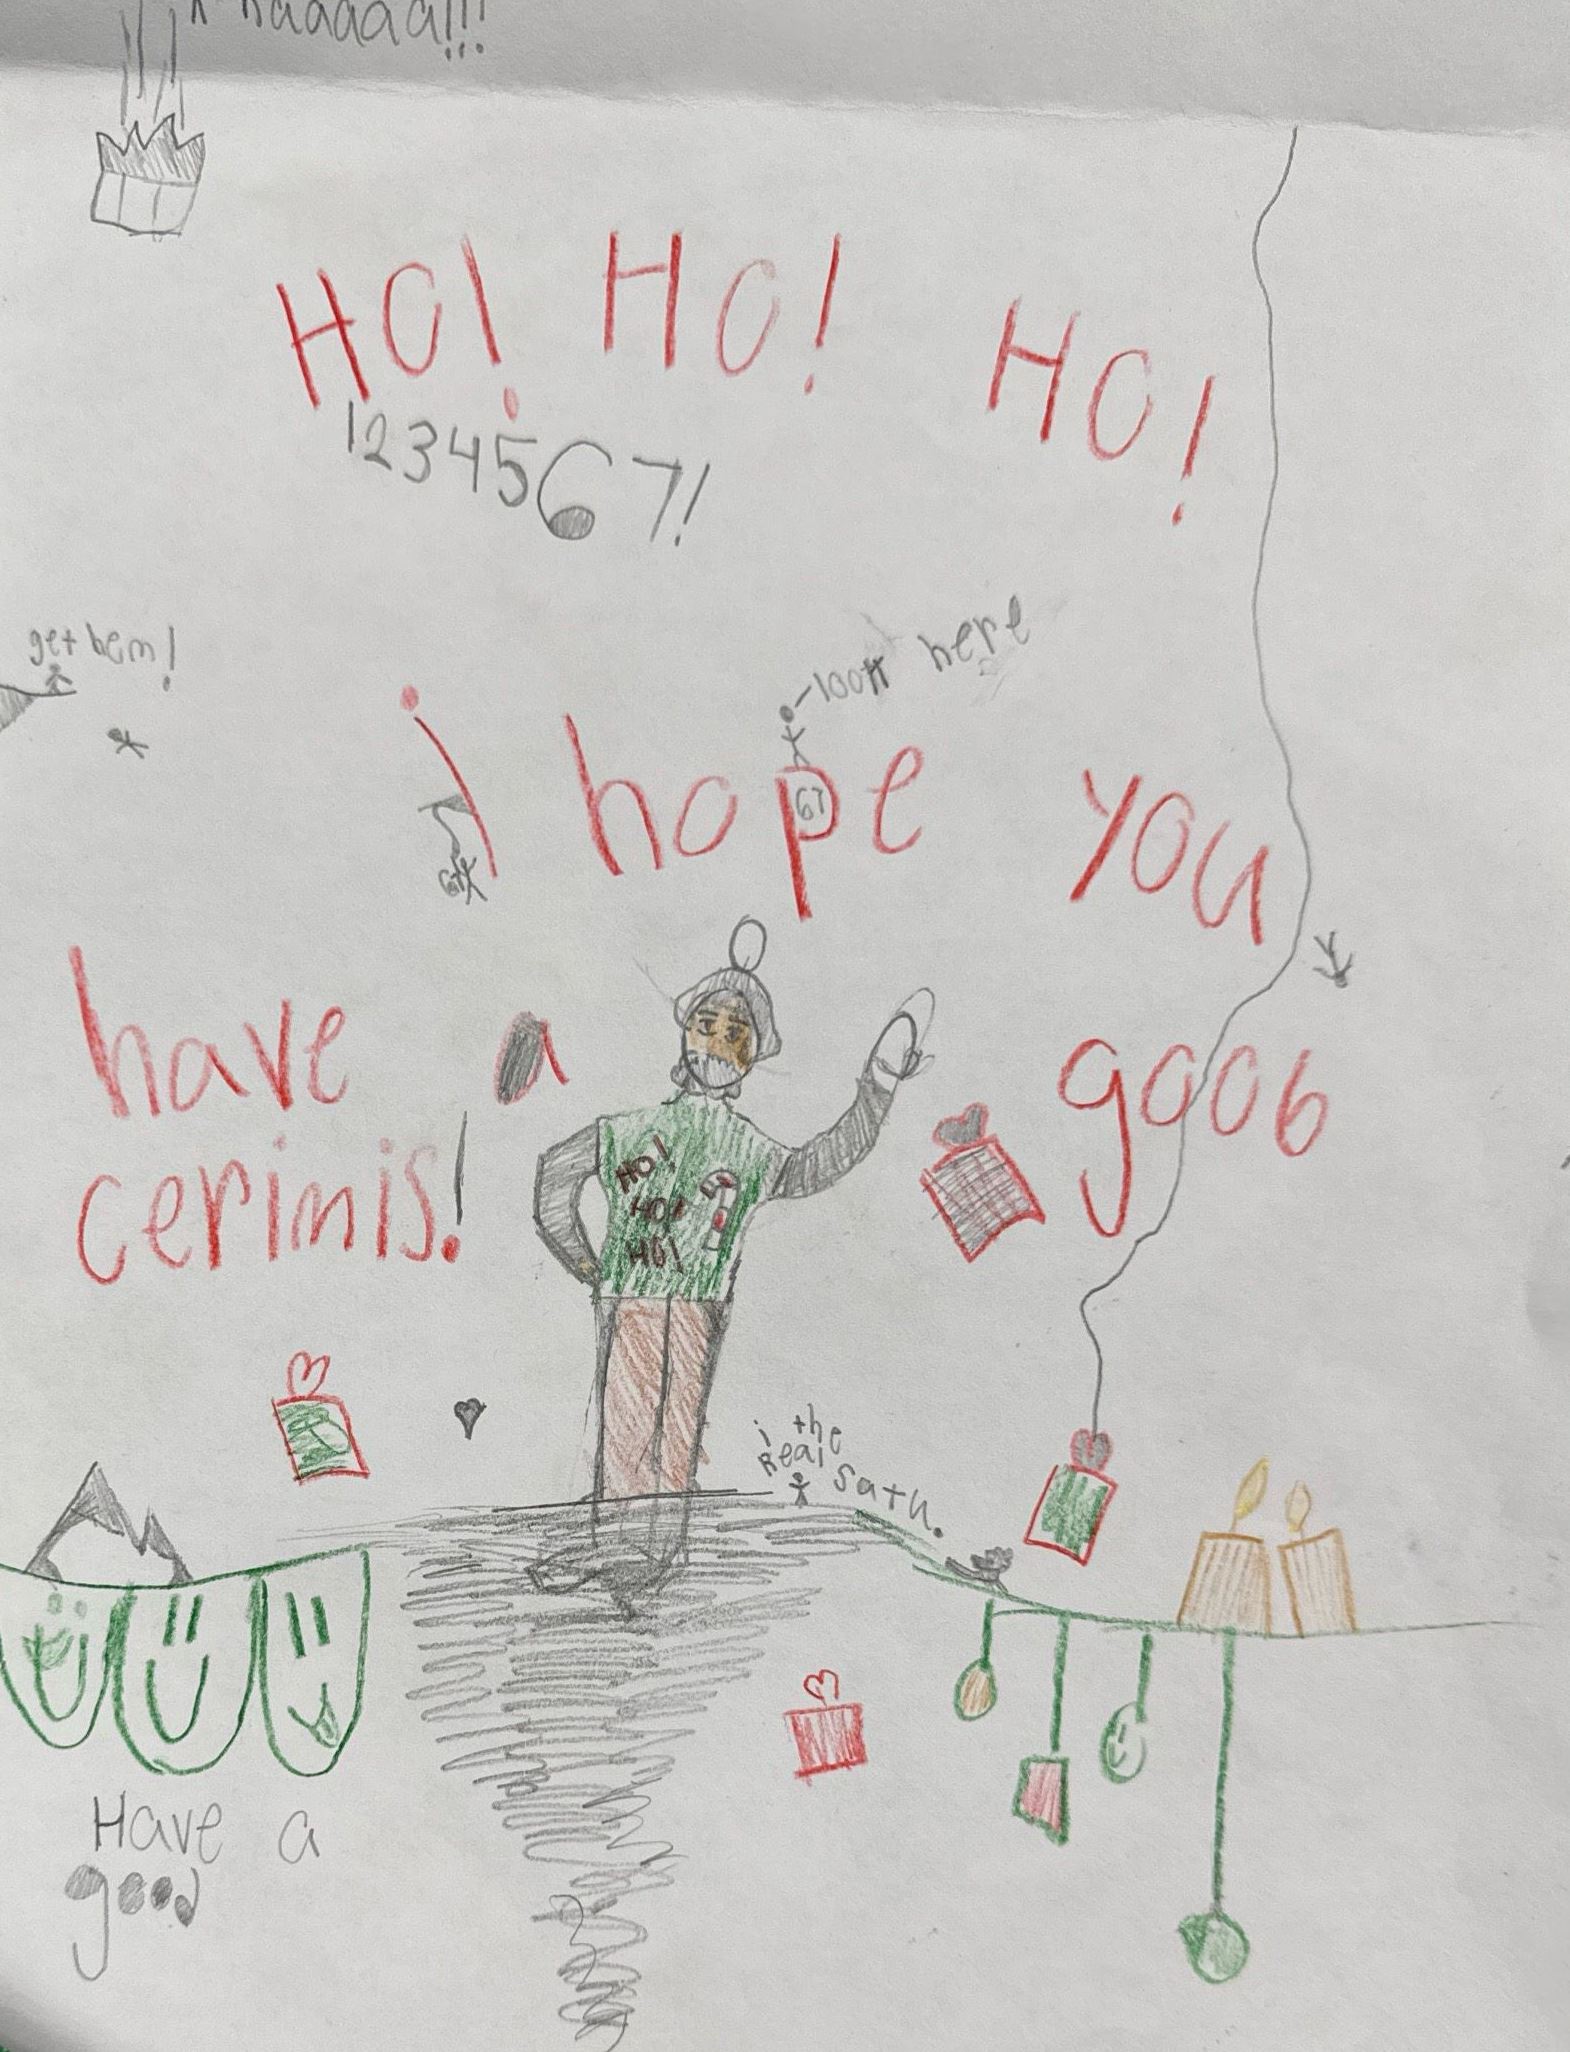 haaaaa!!!
HO! HO! HO!
1234567!
get bem!
-100ft here
i hope you
67
have a goob
cerimis!
HO!
HO!
HO!
i the
Real
satu.
Have a
good